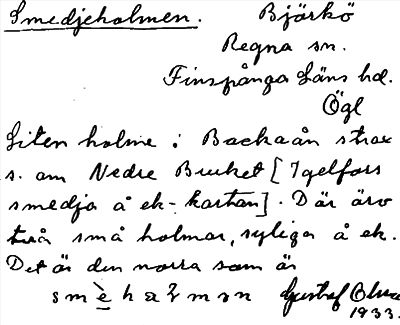 Smedjeholmen. Björkö
Regna sn.
Finspånga läns hd.
Ögl
Liten holme i Backaån strax
s. om Nedre Bruket [Igelfors
smedja å ek-kartan]. Där äro
två små holmar, synliga å ek.
Det är den norra som är
Gustaf
1933.